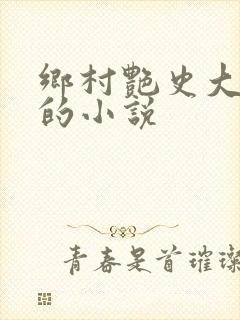 鄉村艷史大
的小説
青春是首璀璨